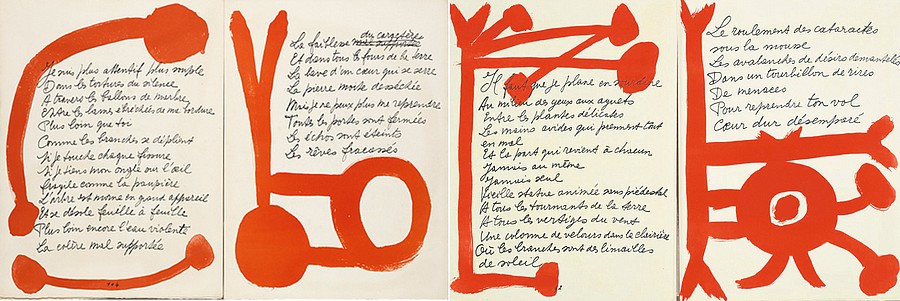 Je suis plus attentif plus souple
Dans les tortures du silence
A travers les ballons de marbre
Entre les lames striées de ma
Plus loin que toi
Comme les branches se déplient
Si je touche chaque fissure
Si je tiens mon ongle ou l'œil
fragile comme la paupière
L'arbre est morne en grand appareil
Et se désole feuille à feuille
Plus loin encore l'eau violente
La colère mal supportée
La faiblesse mal supportée du caractère
Et dans tous les fours de la terre
La lave d'un cœur qui se serre
La pierre morte desséchée
Mais je ne peux plus me reprendre
Toutes les portes sont fermées
Les échos sont éteints
Les rêves fracassés
Il faut que je plane en sourdine
Au milieu des yeux aux aguets
Entre les plantes délicates
Les mains avides qui prennent tout
en mal
Et la part qui revient à chacun
Jamais au même
Jamais seul
Vieille statue animée sans piédestal
A tous les tournants de la terre
A tous les vertiges du vent
Une colonne de velours dans la clairière
Où les branches sont des limailles
de soleil
Le roulement des cataractes
sous la mousse
Les avalanches de désirs démantelés
Dans un tourbillon de rires
De menaces
Pour reprendre ton vol
Cœur dur désemparé